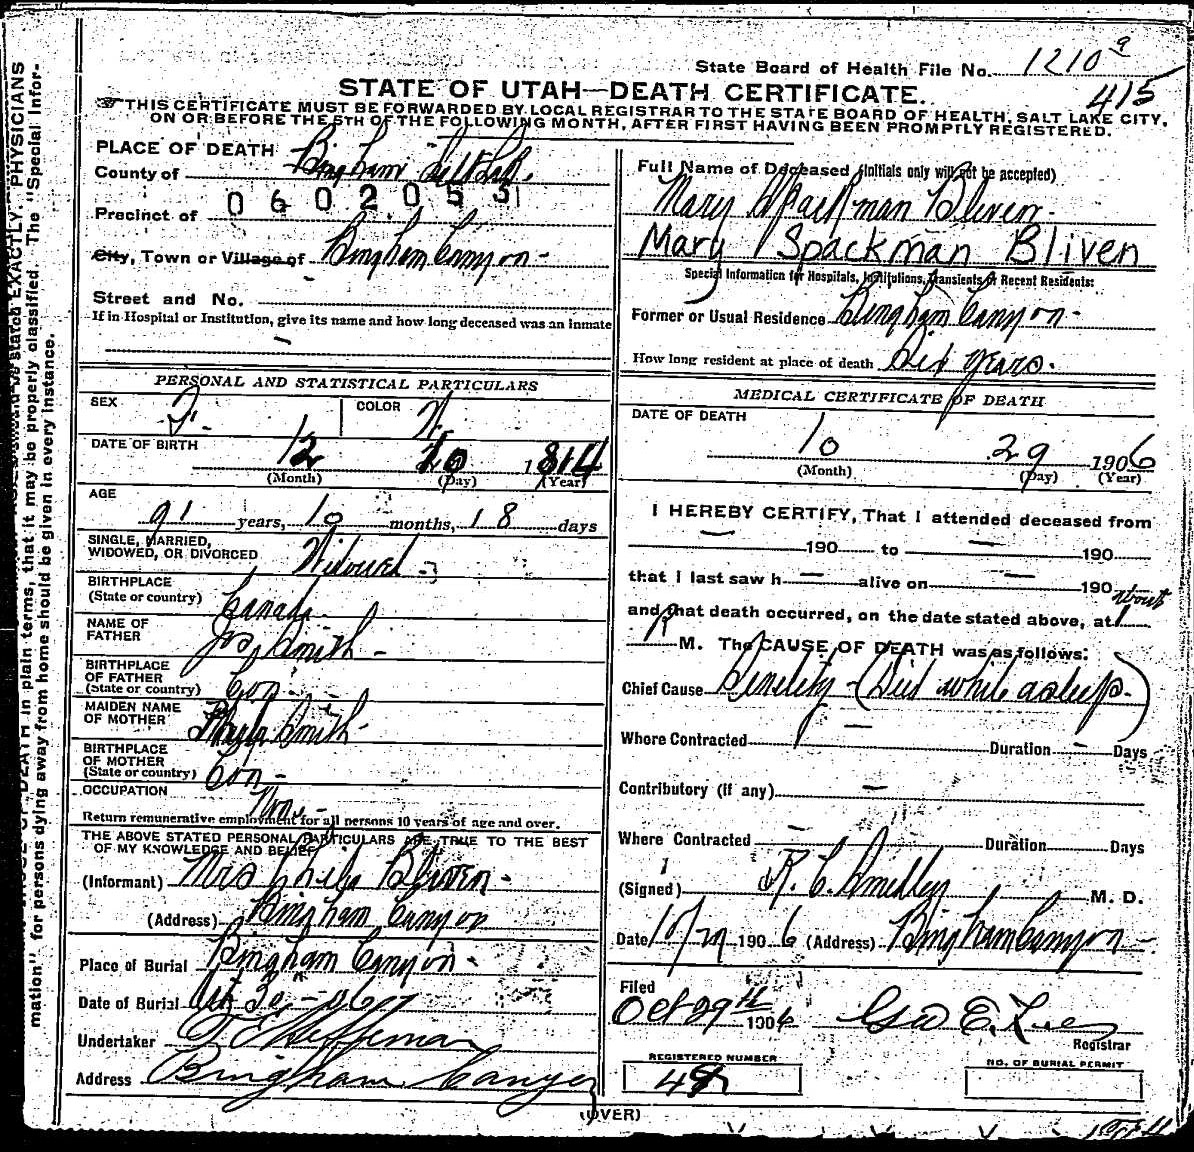 State Board of Health File No. 1210 a
415
STATE OF UTAH—DEATH CERTIFICATE.
THIS CERTIFICATE MUST BE FORWARDED BY LOCAL REGISTRAR TO THE STATE BOARD OF HEALTH, SALT LAKE CITY,
ON OR BEFORE THE 5TH OF THE FOLLOWING MONTH, AFTER FIRST HAVING BEEN PROMPTLY REGISTERED.
PLACE OF DEATH
County of Bingham Salt Lake.
0602055
Precinct of
City, Town or Village of Bingham Canyon -
Street and No. -
If in Hospital or Institution, give its name and how long deceased was an inmate
PERSONAL AND STATISTICAL PARTICULARS
SEX F. COLOR W.
DATE OF BIRTH 12 10 1814
(Month) (Day) (Year)
AGE 91 years, 10 months, 18 days
SINGLE, MARRIED,
WIDOWED, OR DIVORCED Widowed -
BIRTHPLACE
(State or country) Canada.
NAME OF
FATHER Jos Smith -
BIRTHPLACE
OF FATHER
(State or country) Con -
MAIDEN NAME
OF MOTHER Smith -
BIRTHPLACE
OF MOTHER
(State or country) Con -
OCCUPATION None -
Return remunerative employment for all persons 10 years of age and over.
THE ABOVE STATED PERSONAL PARTICULARS ARE TRUE TO THE BEST
OF MY KNOWLEDGE AND BELIEF
(Informant) Mrs Bliven -
(Address) Bingham Canyon
Place of Burial Bingham Canyon -
Date of Burial Oct 30 - 1906
Undertaker Heffernan
Address Bingham Canyon
Full Name of Deceased (Initials only will not be accepted)
Mary Spackman Bliven.
Mary Spackman Bliven
Special Information for Hospitals, Institutions, Transients or Recent Residents:
Former or Usual Residence Bingham Canyon -
How long resident at place of death Six years.
MEDICAL CERTIFICATE OF DEATH
DATE OF DEATH
10 29 1906
(Month) (Day) (Year)
I HEREBY CERTIFY, That I attended deceased from
— 190 to — 190
that I last saw h — alive on — 190
and that death occurred, on the date stated above, at about 1
P M. The CAUSE OF DEATH was as follows:
Chief Cause Senility - (Died while asleep.)
Where Contracted — Duration - Days
Contributory (if any) —
Where Contracted — Duration Days
(Signed) R. C. Smedley M. D.
Date 10/29 1906 (Address) Bingham Canyon -
Filed
Oct 29th 1906 Geo E.
Registrar
REGISTERED NUMBER
NO. OF BURIAL PERMIT
(OVER)
PHYSICIANS
stated EXACTLY.
DEATH in plain terms, that it may be properly classified. The "Special Infor-
mation" for persons dying away from home should be given in every instance.